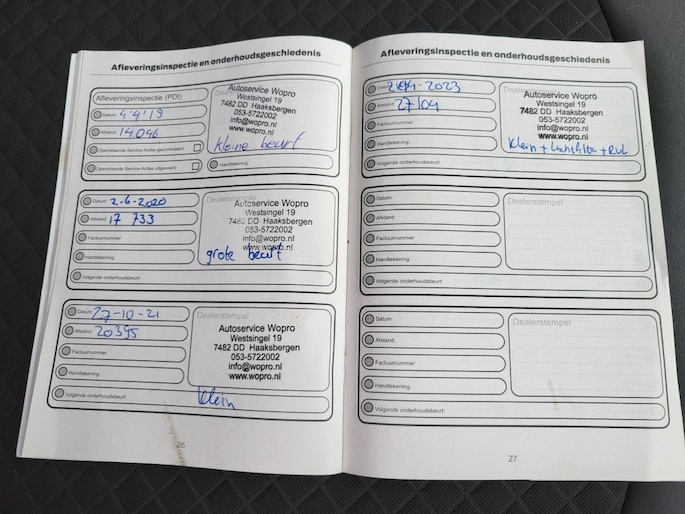 Afleveringsinspectie en onderhoudsgeschiedenis
Afleveringsinspectie (PDI)
Datum 4'4'19
Afstand 14046
Openstaande Service-Acties gecontroleerd
Openstaande Service-Acties uitgevoerd
Dealerstempel
Autoservice Wopro
Westsingel 19
7482 DD Haaksbergen
053-5722002
info@wopro.nl
www.wopro.nl
kleine beurt
Handtekening
Datum: 2-6-2020
Afstand: 17 733
Factuurnummer:
Handtekening:
Volgende onderhoudsbeurt:
Dealerstempel
Autoservice Wopro
Westsingel 19
7482 DD Haaksbergen
053-5722002
info@wopro.nl
www.wopro.nl
grote beurt
Datum: 27-10-21
Afstand: 20395
Factuurnummer:
Handtekening:
Volgende onderhoudsbeurt:
Dealerstempel
Autoservice Wopro
Westsingel 19
7482 DD Haaksbergen
053-5722002
info@wopro.nl
www.wopro.nl
klein
26
Afleveringsinspectie en onderhoudsgeschiedenis
Datum
Afstand: 27104
Factuurnummer:
Handtekening:
Volgende onderhoudsbeurt:
Dealerstempel
Autoservice Wopro
Westsingel 19
7482 DD Haaksbergen
053-5722002
info@wopro.nl
www.wopro.nl
Klein + Luchtfilter + RVL
Datum:
Afstand:
Factuurnummer:
Handtekening:
Volgende onderhoudsbeurt:
Dealerstempel
Datum:
Afstand:
Factuurnummer:
Handtekening:
Volgende onderhoudsbeurt:
Dealerstempel
27